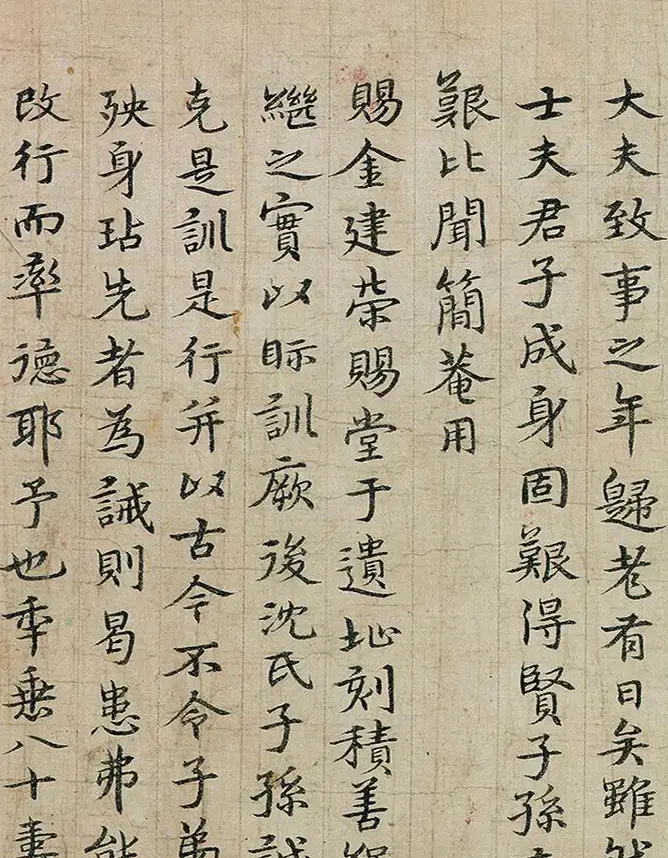 大夫致事之年歸老有日矣雖然
士夫君子成身固艱得賢子孫
艱比聞簡菴用
賜金建榮賜堂于遺址刻積善
繼之實以眎訓厥後沈氏子孫誠
克是訓是行并以古今不令子弟
殃身玷先者為誡則曷患弗能
改行而率德耶予也年垂八十